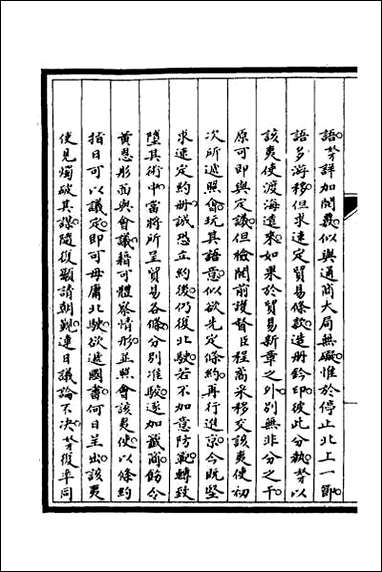 語努詳加開覈似與通商大局無礙惟於停止北上一節
語多游移但求速定貿易條款造册鈐印彼此分執努以
該夷使渡海遠來如果於貿易新章之外別無非分之干
原可即與定議但檢閱前護督臣程矞采移交該夷使初
次所遞照會玩其語意似欲先定條約再行進京今既堅
求速定約册誠恐立約後仍復北駛若不加意防範轉致
墮其術中當將所呈貿易各條分別准駮逐加籤商飭令
黃恩彤面與會議藉可體察情形並照會該夷使以條約
指日可以議定即可毋庸北駛欲遞國書何日呈出該夷
使見燭破其謀隨復顯請朝覲連日議論不決努復率同